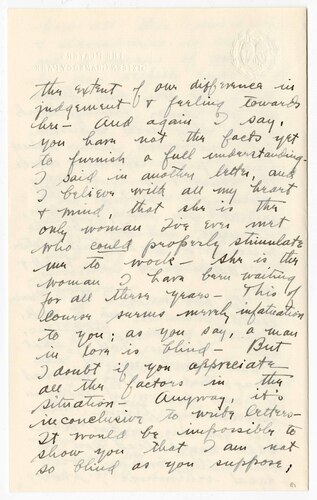 the extent of our difference in
judgement & feeling towards
her – And again I say,
you have not the facts yet
to furnish a full understanding –
I said in another letter, and
I believe with all my heart
& mind, that she is the
only woman I've ever met
who could properly stimulate
me to work – She is the
woman I have been waiting
for all these years – This of
course seems merely infatuation
to you; as you say, a man
in love is blind – But
I doubt if you appreciate
all the factors in the
situation – Anyway, it's
inconclusive to write letters –
It would be impossible to
show you that I am not
so blind as you suppose,